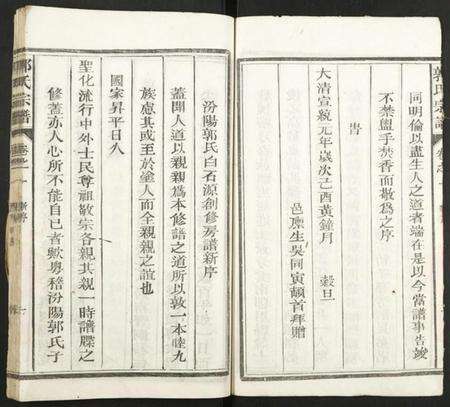 郭氏宗譜
同明倫以盡生人之道者端在是以今當譜事告竣
不禁盥手焚香而敬爲之序
旹
大清宣統元年歲次己酉黃鐘月 穀旦
邑廩生吳同寅頓首拜贈
汾陽郭氏白石源創修房譜新序
蓋聞人道以親親爲本修譜之道所以敦一本睦九
族慮其或至於塗人而全親親之誼也
國家昇平日久
聖化流行中外士民尊祖敬宗各親其親一時譜牒之
修蓋亦人心所不能自已者歟粤稽汾陽郭氏子
郭氏宗譜